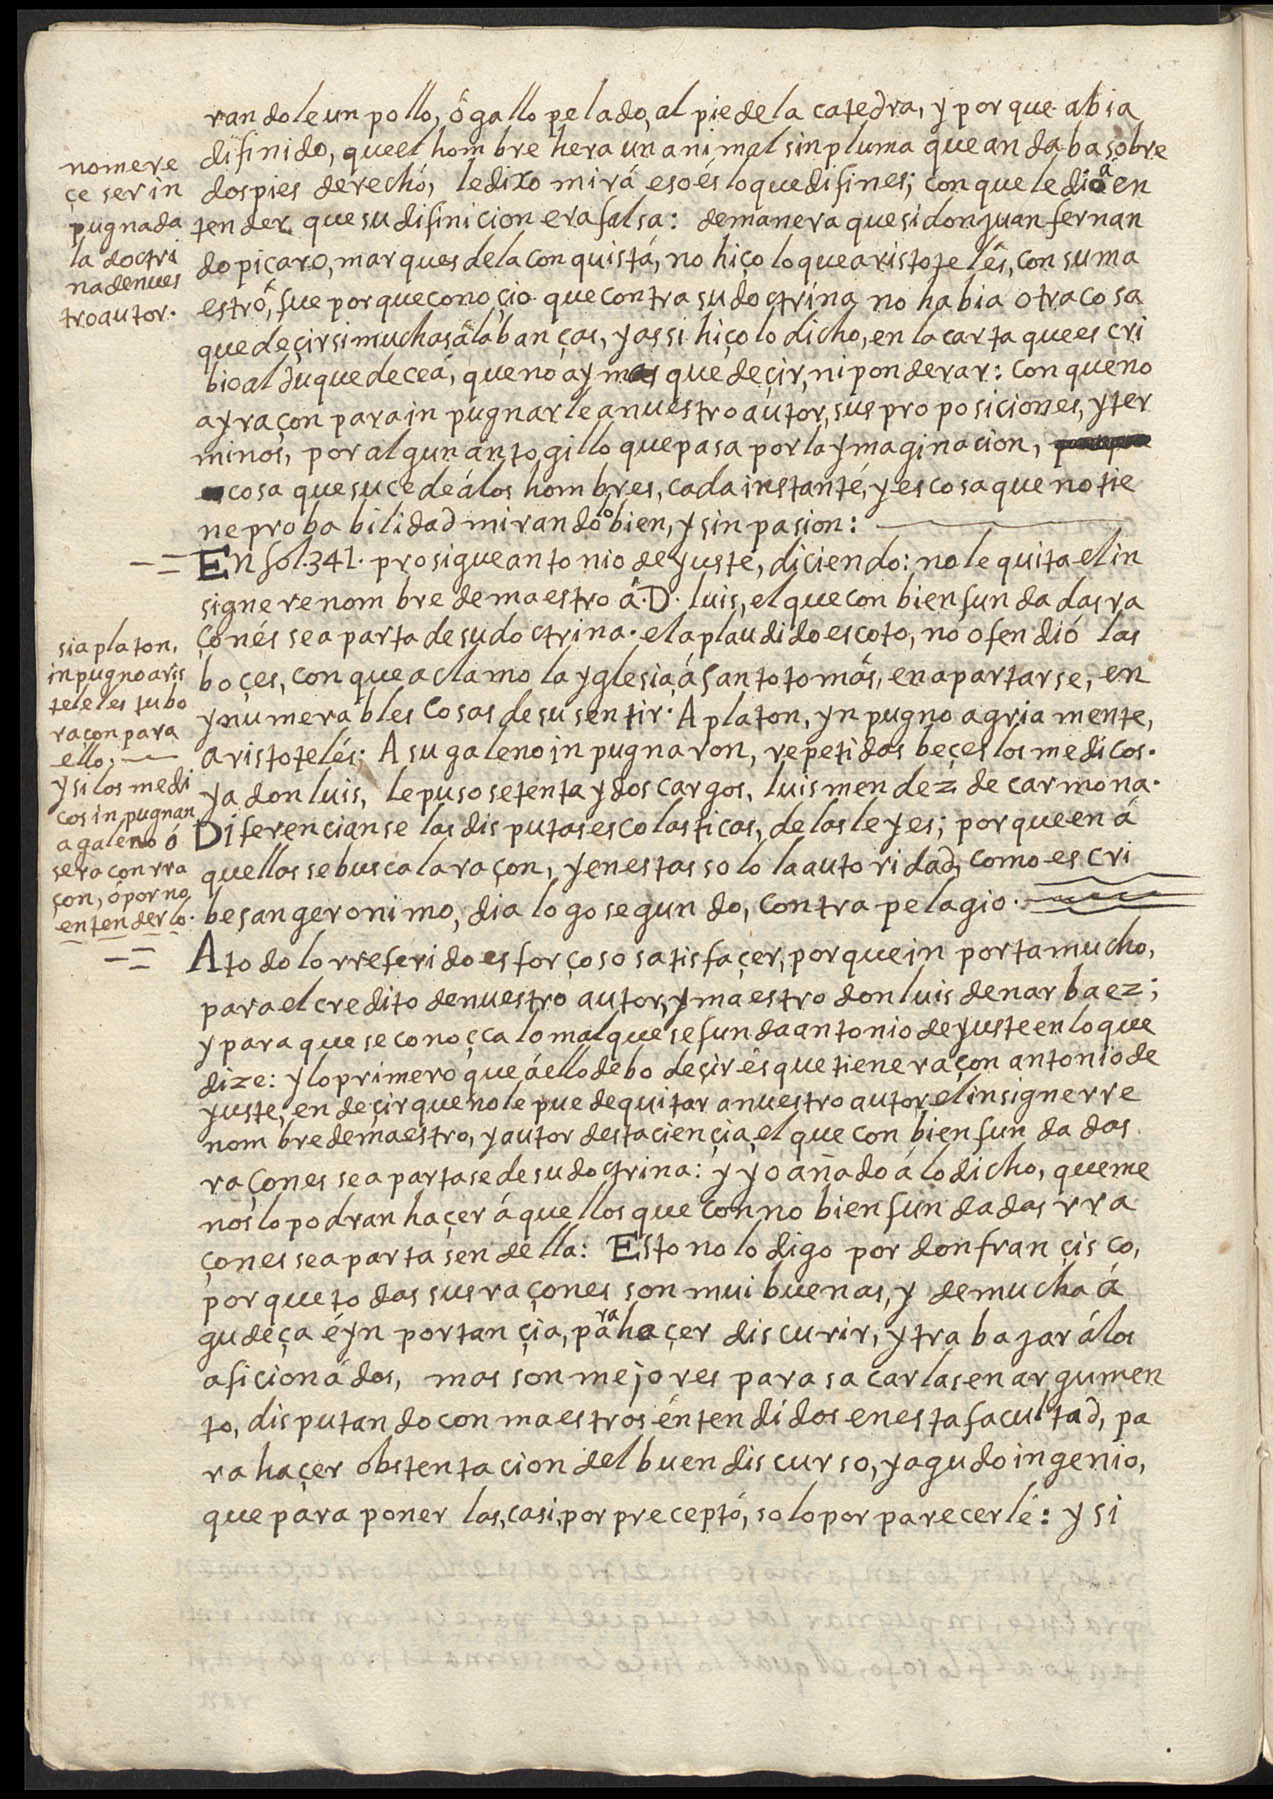 randole un pollo, ó gallo pelado, al pie de la catedra, y porque abia
difinido, que el hombre hera un animal sin pluma que andaba sobre
dos pies derechó, le dixo mirá eso és lo que difines; con que le dio á en
tender que su difinicion era falsa: de manera que si don juan fernan
do piçaro, marques de la conquistá, no hiço lo que aristotelés, con su ma
estró, fue porque conoçio que contra su doctrina no habia otra cosa
que deçir si muchas alabanças, y assi hiço lo dicho, en la carta que escri
bio al duque de ceá, que no ay mas que deçir, ni ponderar: con que no
ay raçon para inpugnarle a nuestro autor, sus proposiciones, y ter
minos, por algun antogillo que pasa por la ymaginacion,
cosa que sucede á los hombres, cada instanté, y es cosa que no tie
ne probabilidad mirandolo bien, y sin pasion:
nomere
çe ser in
pugnada
la doctri
na de nues
tro autor.
En fol. 341. prosigue antonio de yusté, diciendo: no le quita el in
signe renombre de maestro á D. luis, el que con bien fundadas ra
çonés se aparta de su doctrina. el aplaudido escoto, no ofendió las
boçes, con que aclamo la yglesia, á santo tomás, en apartarse, en
ynumerables cosas de su sentir. A platon, ynpugno agriamente,
aristotelés: A su galeno inpugnaron, repetidas beçes los medicos.
y a don luis, le puso setenta y dos cargos, luis mendez de carmona.
Diferencianse las disputas escolasticas, de las leyes; porque en á
quellas se busca la raçon, y en estas solo la autoridad, como escri
be san geronimo, dialogo segundo, contra pelagio.
si a platon,
inpugno aris
teteles tubo
raçon para
ello,
y si los medi
cos inpugnan
a galeno ó
sera con rra
çon, ó por no
entenderló.
A todo lo rreferido es forçoso satisfaçer, porque inporta mucho,
para el credito de nuestro autor, y maestro don luis de narbaez;
y para que se conoçca lo mal que se funda antonio de yuste en lo que
dize: y lo primero que á ello debo deçir és que tiene raçon antonio de
yuste, en deçir que no le puede quitar a nuestro autor, el insigne rre
nombre de maestro, y autor desta ciençia, el que con bien fundadas
raçones se apartase de su doctrina: y yo añado á lo dicho, que me
nos lo podran haçer áquellos que con no bien fundadas rra
çones se apartasen della: Esto no lo digo por don françisco,
porque todas sus raçones son mui buenas, y de mucha á
gudeça é ynportançia, para haçer discurir, y trabajar á los
aficionádos, mas son mejores para sacarlas en argumen
to, disputando con maestros éntendidos en esta facultad, pa
ra haçer obstentacion del buen discurso, y agudo ingenio,
que para ponerlas, casi, por preceptó, solo por parecerlé: y si